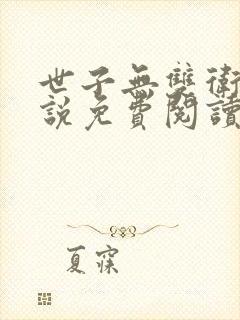 世子無雙衛
說免費閱讀
夏寐